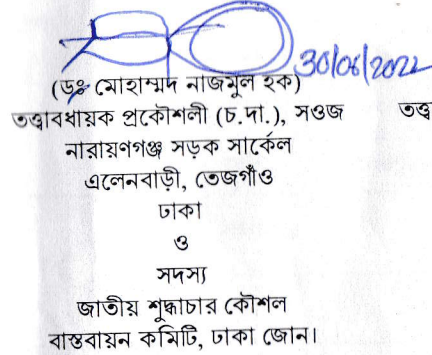 30/06/2022
(ডঃ মোহাম্মদ নাজমুল হক)
তত্ত্বাবধায়ক প্রকৌশলী (চ.দা.), সওজ তত্ত্ব
নারায়ণগঞ্জ সড়ক সার্কেল
এলেনবাড়ী, তেজগাঁও
ঢাকা
ও
সদস্য
জাতীয় শুদ্ধাচার কৌশল
বাস্তবায়ন কমিটি, ঢাকা জোন।